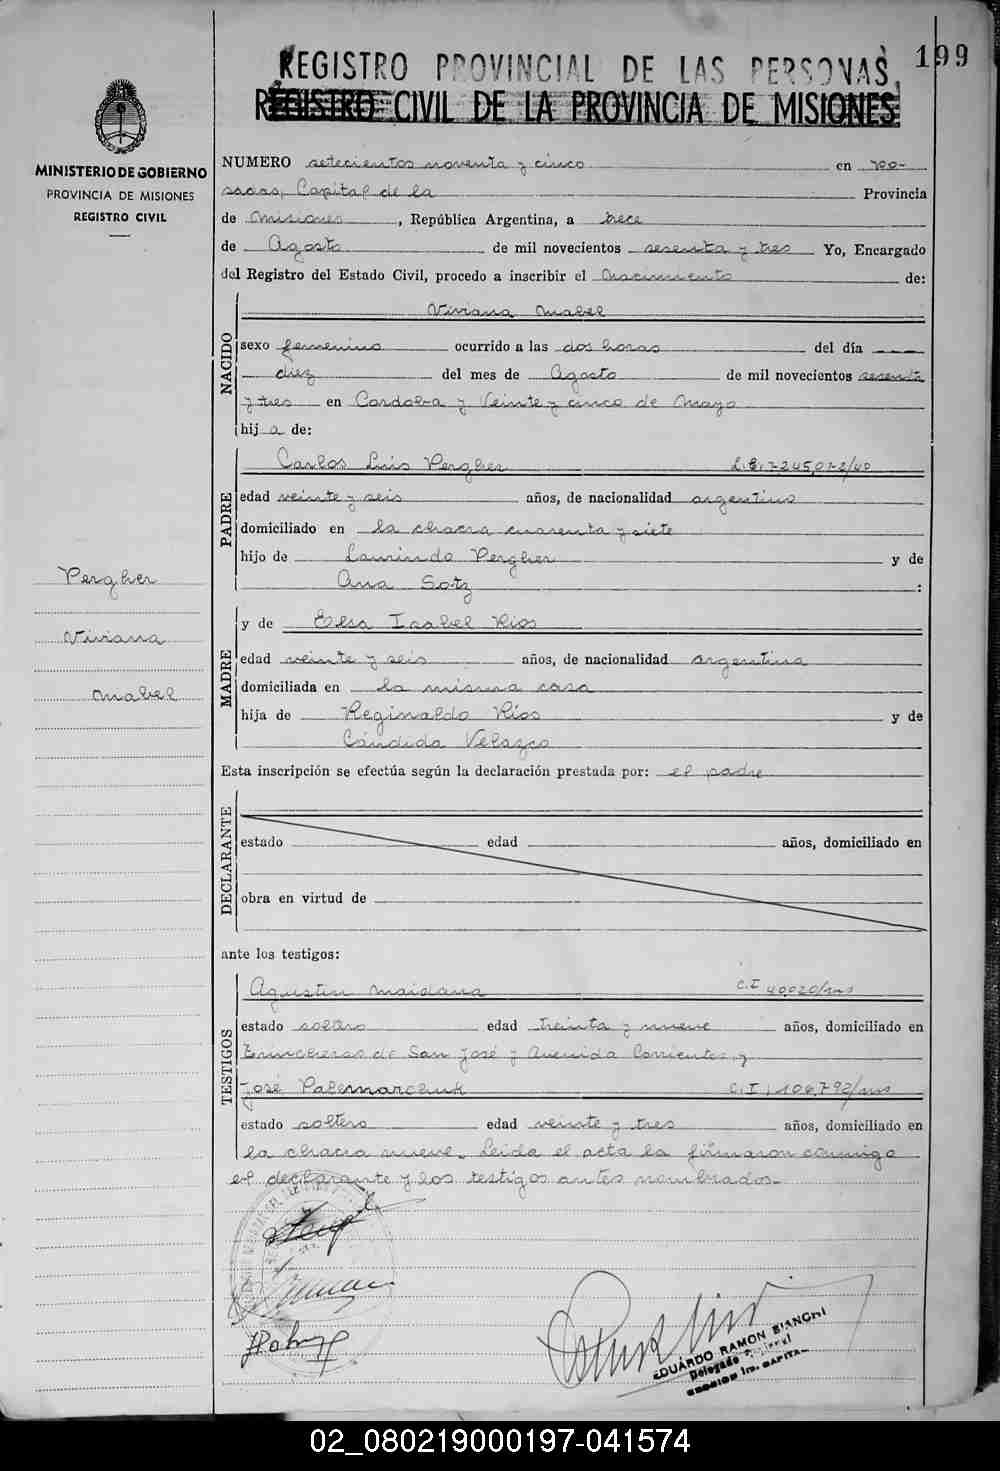 REGISTRO PROVINCIAL DE LAS PERSONAS
199
REGISTRO CIVIL DE LA PROVINCIA DE MISIONES
MINISTERIO DE GOBIERNO
PROVINCIA DE MISIONES
REGISTRO CIVIL
NUMERO setecientos noventa y cinco en Po-
sadas, Capital de la Provincia
de Misiones, República Argentina, a trece
de Agosto de mil novecientos sesenta y tres Yo, Encargado
del Registro del Estado Civil, procedo a inscribir el Nacimiento de:
NACIDO
Viviana Mabel
sexo femenino ocurrido a las dos horas del día
diez del mes de Agosto de mil novecientos sesenta
y tres en Cordoba y Veinte y cinco de Mayo
hij a de:
PADRE
Carlos Luis Pergher L.E. 7.245.072/40
edad veinte y seis años, de nacionalidad argentino
domiciliado en la chacra cuarenta y siete
hijo de Laurindo Pergher y de
Ana Sotz :
MADRE
y de Elsa Isabel Rios
edad veinte y seis años, de nacionalidad argentina
domiciliada en la misma casa
hija de Reginaldo Ríos y de
Cándida Velazco
Pergher
Viviana
Mabel
Esta inscripción se efectúa según la declaración prestada por: el padre
DECLARANTE
estado edad años, domiciliado en
obra en virtud de
ante los testigos:
TESTIGOS
Agustin Maidana C.I 40020/
estado soltero edad treinta y nueve años, domiciliado en
Trincheras de San José y Avenida Corrientes y
José Palemarczuk C.I. 106.792/
estado soltero edad veinte y tres años, domiciliado en
la chacra nueve. Leida el acta la firmaron conmigo
el declarante y los testigos antes nombrados.-
EDUARDO RAMON BIANCHI
Delegado
CAPITAL
02_080219000197-041574